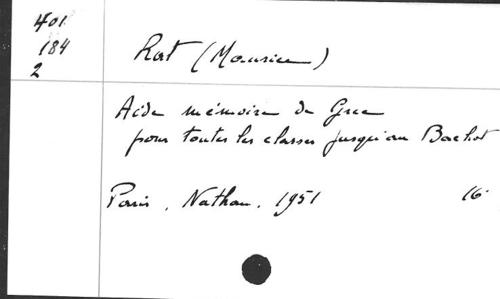 401
184
2
Rat (Maurice)
Aide mémoire de Grec
pour toutes les classes jusqu'au Bachot
Paris, Nathan, 1951 16°